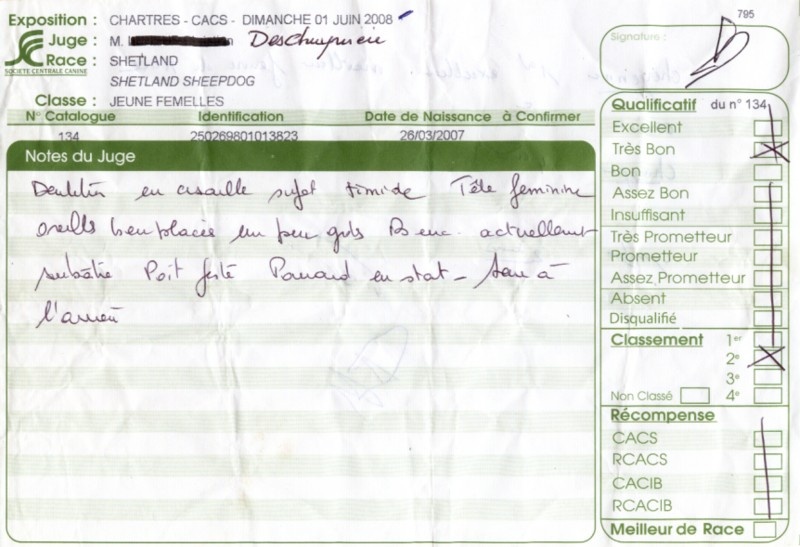 795
Exposition : CHARTRES - CACS - DIMANCHE 01 JUIN 2008
Juge : M.
Race : SHETLAND
SOCIETE CENTRALE CANINE
SHETLAND SHEEPDOG
Classe : JEUNE FEMELLES
N° Catalogue Identification Date de Naissance à Confirmer
134 250269801013823 26/03/2007
Notes du Juge
en cisaille sujet timide Tête feminine
bien placés un peu gros actuellement
en stat -
Signature :
Qualificatif du n° 134
Excellent
Très Bon
Bon
Assez Bon
Insuffisant
Très Prometteur
Prometteur
Assez Prometteur
Absent
Disqualifié
Classement 1er
2e
3e
Non Classé 4e
Récompense
CACS
RCACS
CACIB
RCACIB
Meilleur de Race